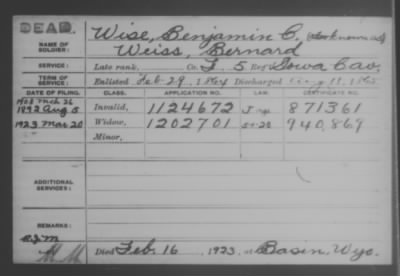 DEAD.
NAME OF SOLDIER:
Wise, Benjamin C. (also known as)
Weiss, Bernard
SERVICE: Late rank, Co. L. 5 Reg't Iowa Cav.
TERM OF SERVICE: Enlisted Feb 29, 1864 Discharged Aug 11, 1865
DATE OF FILING. CLASS. APPLICATION NO. LAW. CERTIFICATE NO.
Mch 26
1892 Aug 5 Invalid, 1124672 871361
1923 Mar 20 Widow, 1202701 940,869
Minor,
ADDITIONAL SERVICES:
REMARKS:
Died Feb. 16, 1923, at Basin, Wyo.